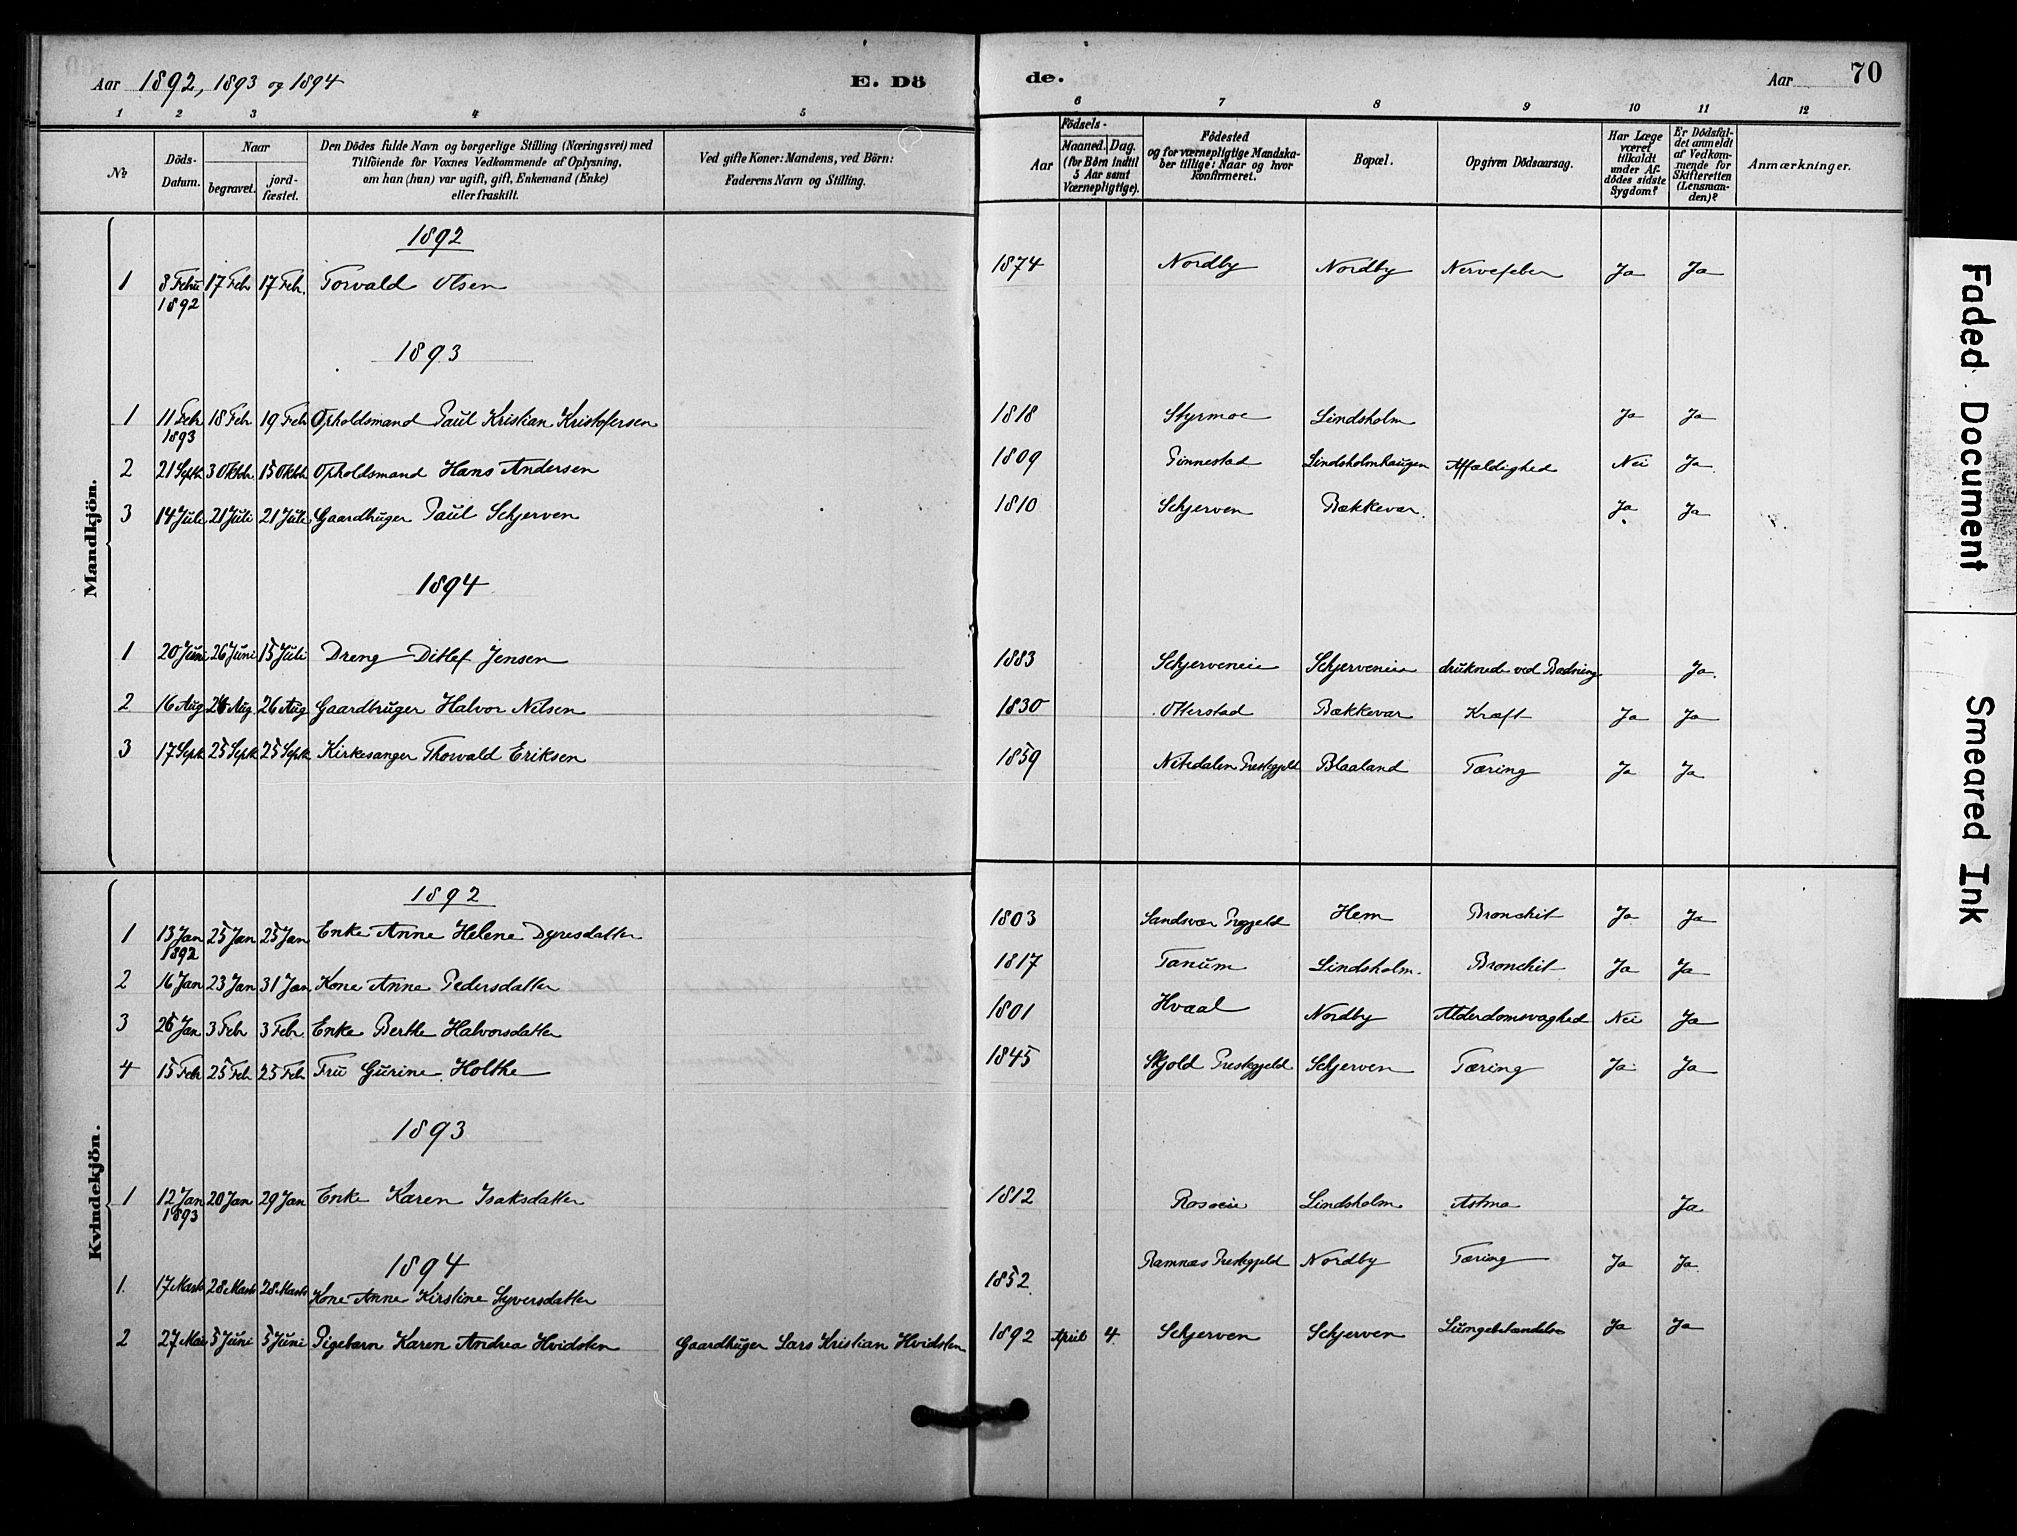 Aar 1892, 1893 og 1894 E. Dö de. Aar 70
1 2 3 4 5 6 7 8 9 10 11 12
No
Döds-
Datum.
Naar
begravet.
jord-
fæstet.
Den Dödes fulde Navn og borgerlige Stilling (Næringsvei) med
Tilföiende for Voxnes Vedkommende af Oplysning,
om han (hun) var ugift, gift, Enkemand (Enke)
eller fraskilt.
Ved gifte Koner: Mandens, ved Börn:
Faderens Navn og Stilling.
Aar
Födsels-
Maaned. Dag.
(for Börn indtil
5 Aar samt
Værnepligtige).
Födested
og for værnepligtige Mandska-
ber tillige: Naar og hvor
Konfirmeret.
Bopæl.
Opgiven Dödsaarsag.
Har Læge
været
tilkaldt
under Af-
dödes sidste
Sygdom?
Er Dödsfal-
det anmeldt
af Vedkom-
mende for
Skifteretten
(Lensman-
den)?
Anmærkninger.
Mandkjön.
1892
1 3 Febru 17 Febr 17 Febr. Torvald Olsen 1874 Nordby Nordby Nervefeber Ja Ja
1892
1893
1 11 Febr 18 Febr 19 Febr Opholdsmand Paul Kristian Kristofersen 1818 Styrmoe Lindsholm Ja Ja
1893
2 21 Septb 3 Oktbr. 15 Oktbr. Opholdsmand Hans Andersen 1809 Pinnestad Lindsholmhaugen Affældighed Nei Ja
3 14 Juli 21 Juli 21 Juli Gaardbruger Paul Schjerven 1810 Schjerven Bækkevar. Ja Ja
1894
1 20 Juni 26 Juni 15 Juli Dreng Ditlef Jensen 1883 Schjerveneie Schjerveneie druknede ved Badning Ja.
2 16 Aug 26 Aug 26 Aug Gaardbruger Halvor Nilsen 1830 Otterstad Bækkevar Kræft Ja Ja
3 17 Septb 25 Septb 25 Septb Kirkesanger Thorvald Eriksen 1859 Nitedalen Prestegjeld Blaaland Tæring Ja Ja
Kvindekjön.
1892
1 13 Jan 25 Jan 25 Jan Enke Anne Helene Dyresdatter 1803 Sandsvær Prgjeld Hem Bronchit Ja Ja
1892
2 16 Jan 23 Jan 31 Jan Kone Anne Pedersdatter 1817 Tanum Lindsholm. Bronchit Ja Ja
3 26 Jan 3 Febr 3 Febr. Enke Berthe Halvorsdatter 1801 Hvaal Nordby Alderdomsvaghed Nei Ja
4 15 Febr 25 Feb 25 Feb Fru Gurine Holthe 1845 Skjold Prestegjeld Schjerven Tæring Ja Ja
1893
1 12 Jan 20 Jan 29 Jan Enke Karen Isaksdatter 1812 Lindsholm Astma Ja
1893
1894
1. 17 Marts 28 Marts 28 Marts Kone Anne Kirstine Syversdatter 1852 Ramnæs Prestegjeld Nordby Tæring Ja Ja
2 27 Mai 5 Juni 5 Juni Pigebarn Karen Andrea Hvidsten Gaardbruger Lars Kristian Hvidsten 1892 April 4 Schjerven Schjerven Lungebetændelse Ja Ja
Faded Document
Smeared Ink